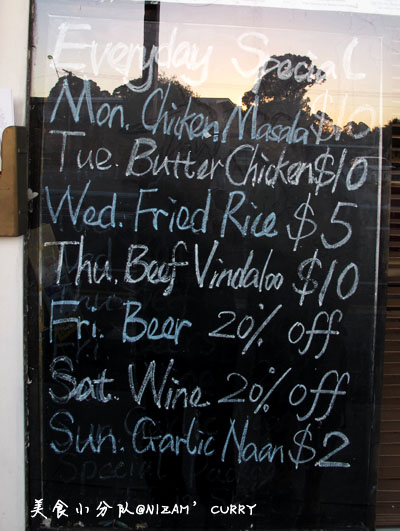 Everyday Special
Mon. Chicken Masala $10
Tue. Butter Chicken $10
Wed. Fried Rice $5
Thu. Beef Vindaloo $10
Fri. Beer 20% off
Sat. Wine. 20% off
Sun. Garlic Naan $2
美食小分队@NIZAM' CURRY